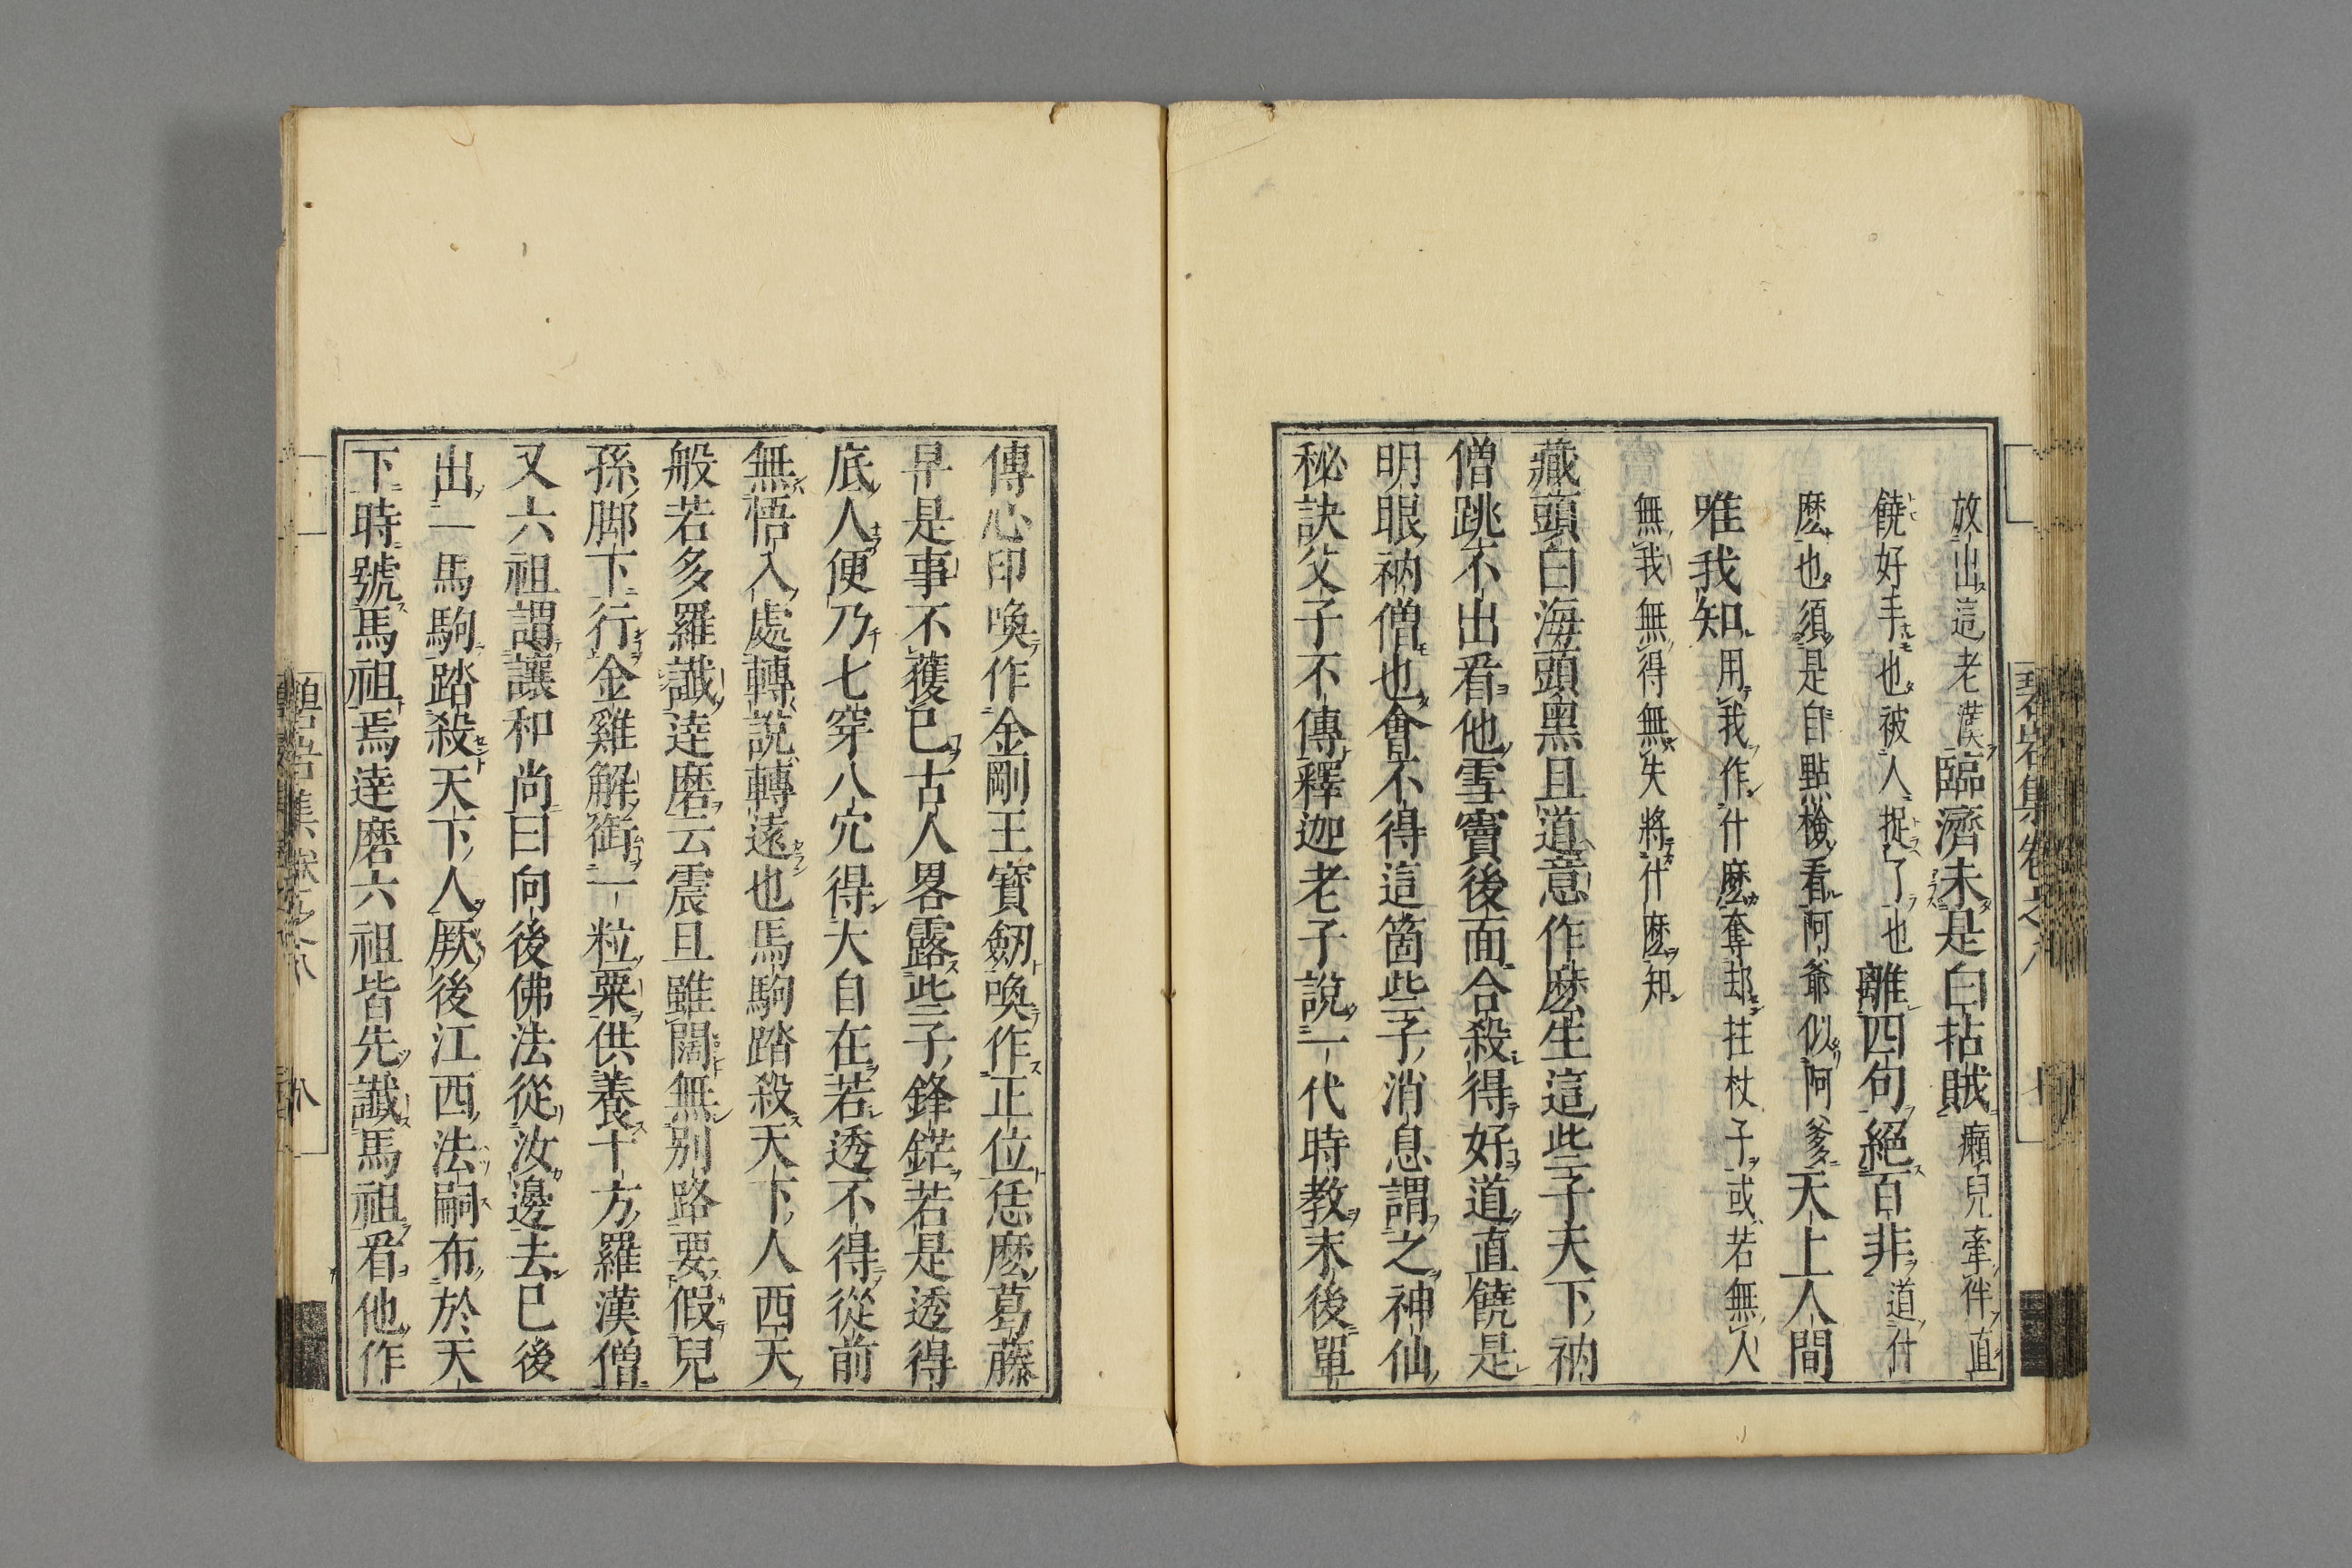 放出這老漢臨濟未是白拈賊癩兒牽伴直
饒好手也被人捉了也離四句絕百非道什
麽也須是自點檢看阿爺似阿爹天上人間
唯我知用我作什麽奪却拄杖子或若無人
無我無得無失將什麽知
藏頭白海頭黑且道意作麽生這些子天下衲
僧跳不出看他雪竇後面合殺得好道直饒是
明眼衲僧也會不得這箇些子消息謂之神仙
秘訣父子不傳釋迦老子說一代時教末後單
傳心印喚作金剛王寶劒喚作正位恁麽葛藤
早是事不獲已古人畧露些子鋒鋩若是透得
底人便乃七穿八穴得大自在若透不得從前
無悟入處轉說轉遠也馬駒踏殺天下人西天
般若多羅讖達磨云震旦雖闊無別路要假兒
孫脚下行金雞解銜一粒粟供養十方羅漢僧
又六祖謂讓和尚曰向後佛法從汝邊去已後
出一馬駒踏殺天下人厥後江西法嗣布於天
下時號馬祖焉達磨六祖皆先讖馬祖看他作
碧岩集卷之八